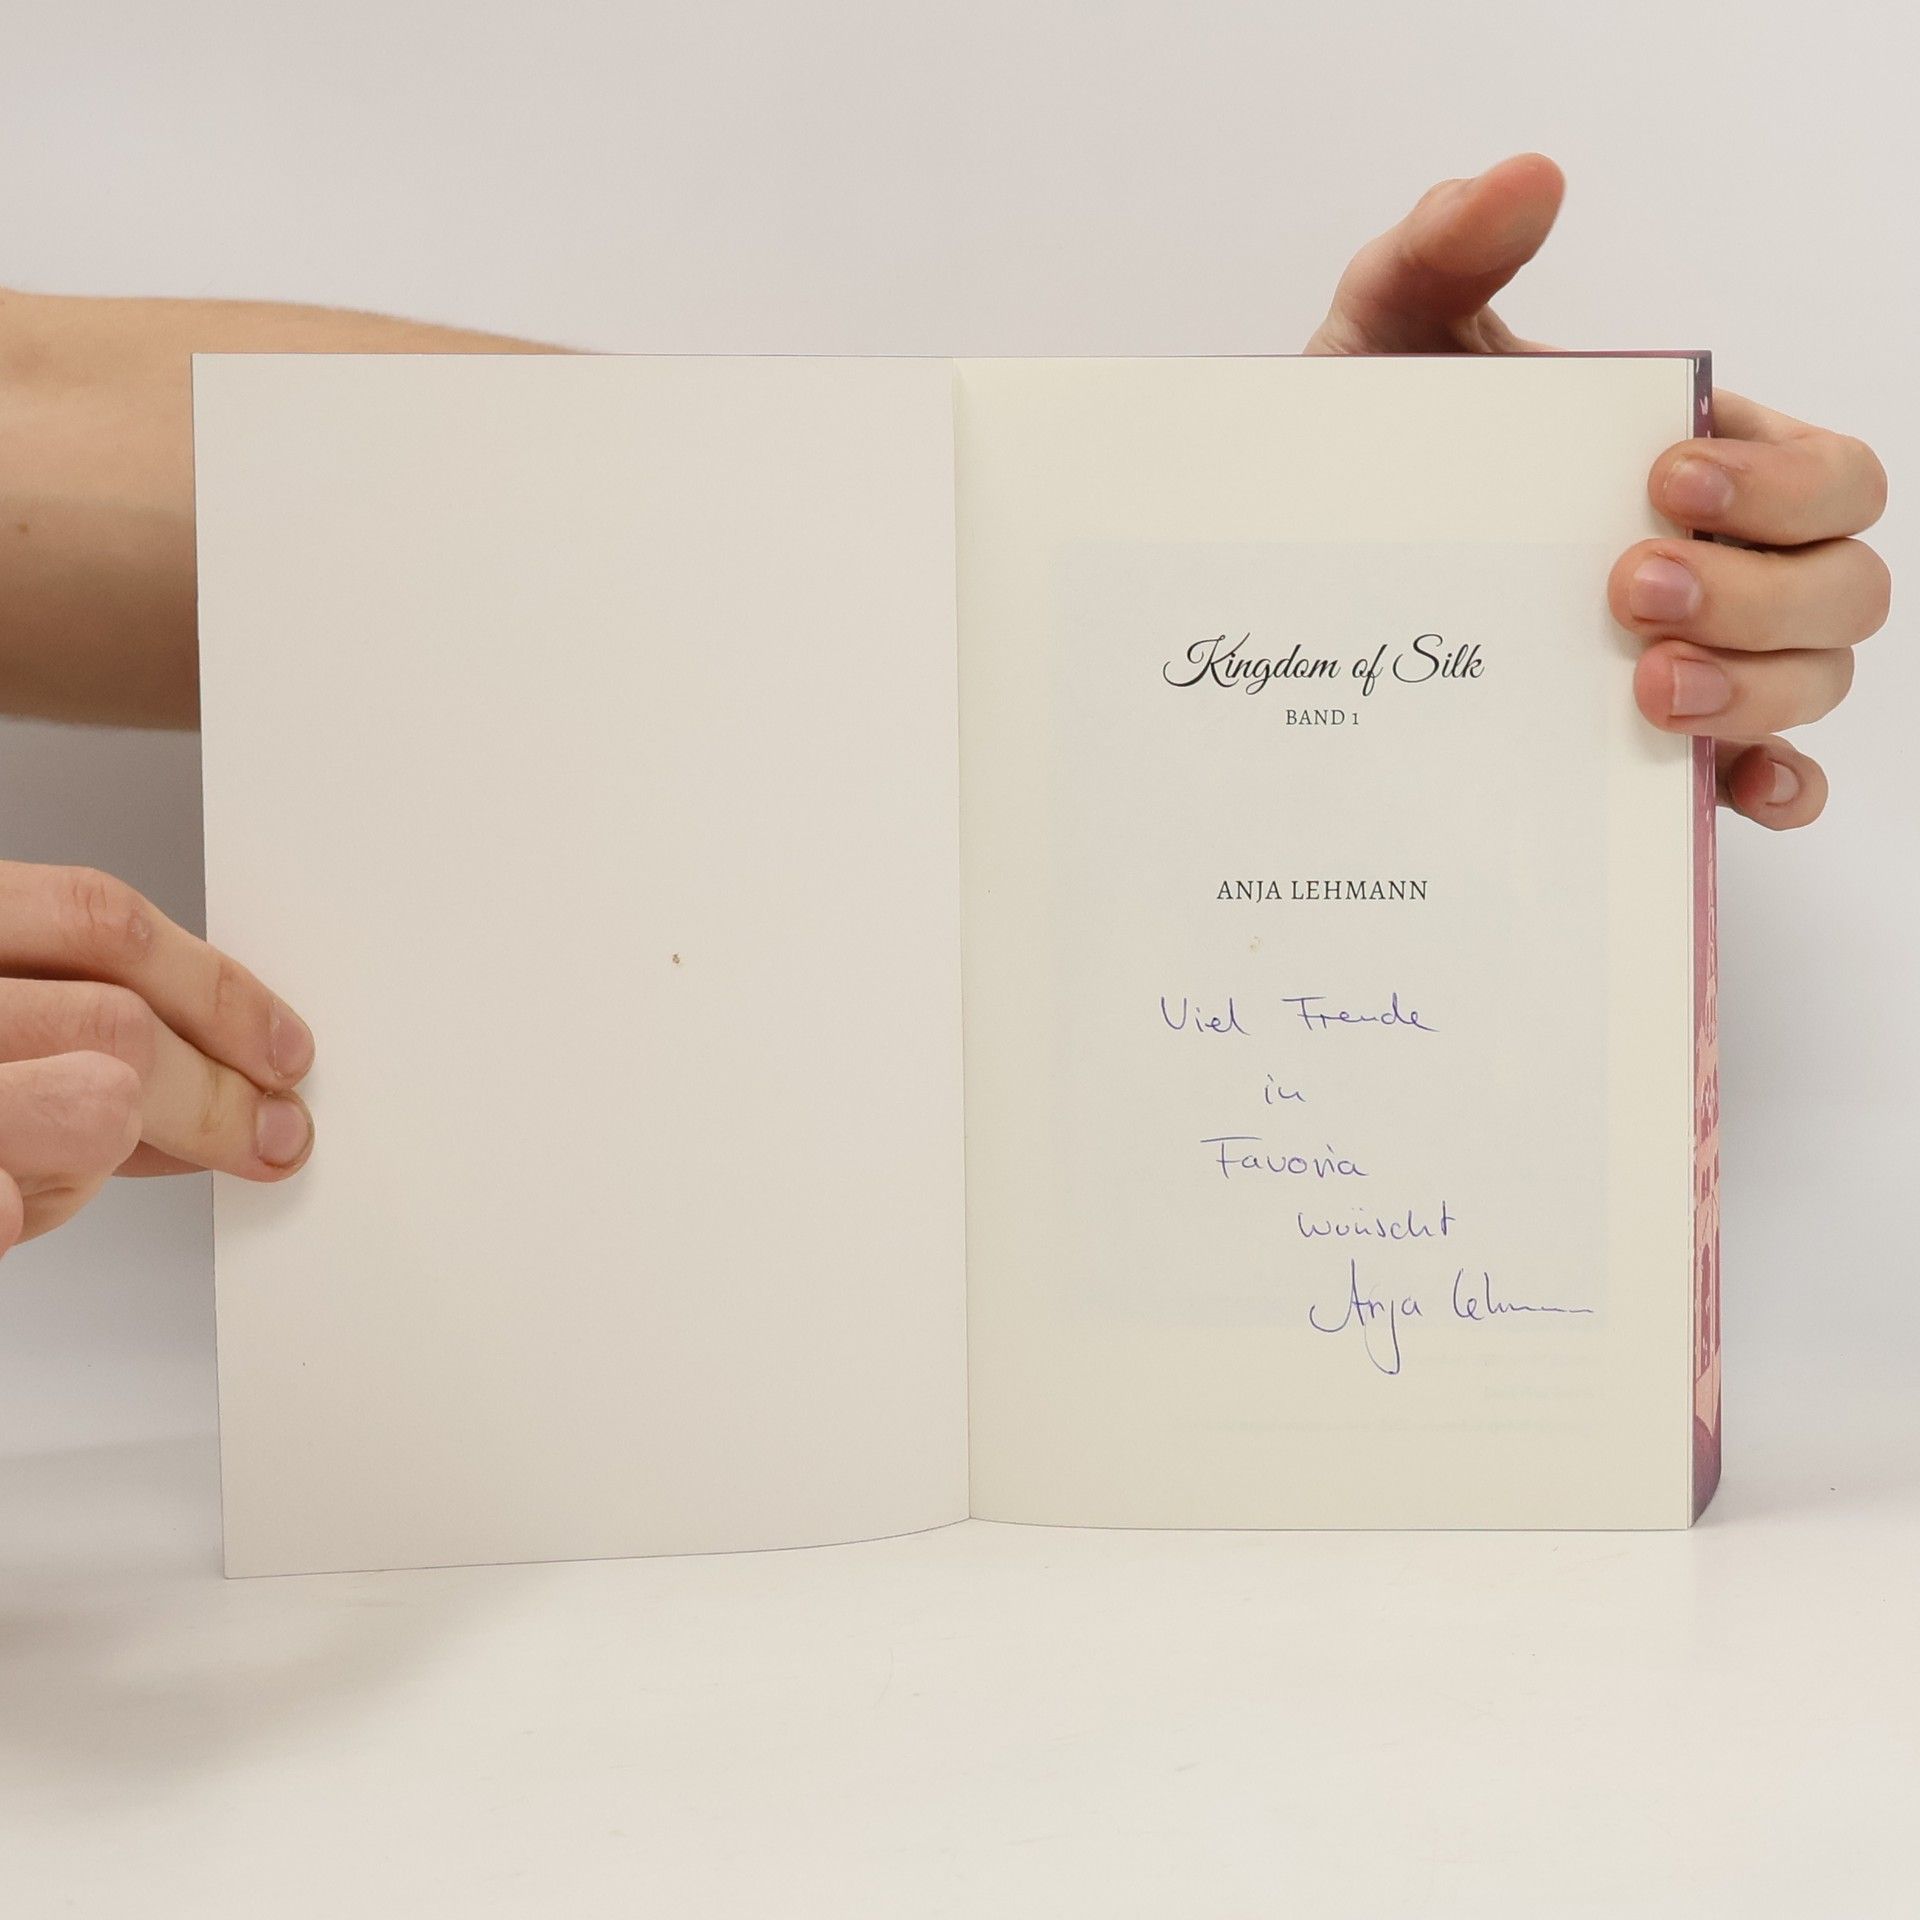 Kingdom of Silk
BAND 1
ANJA LEHMANN
Viel Freude
in
Favoria
wünscht
Anja Lehmann